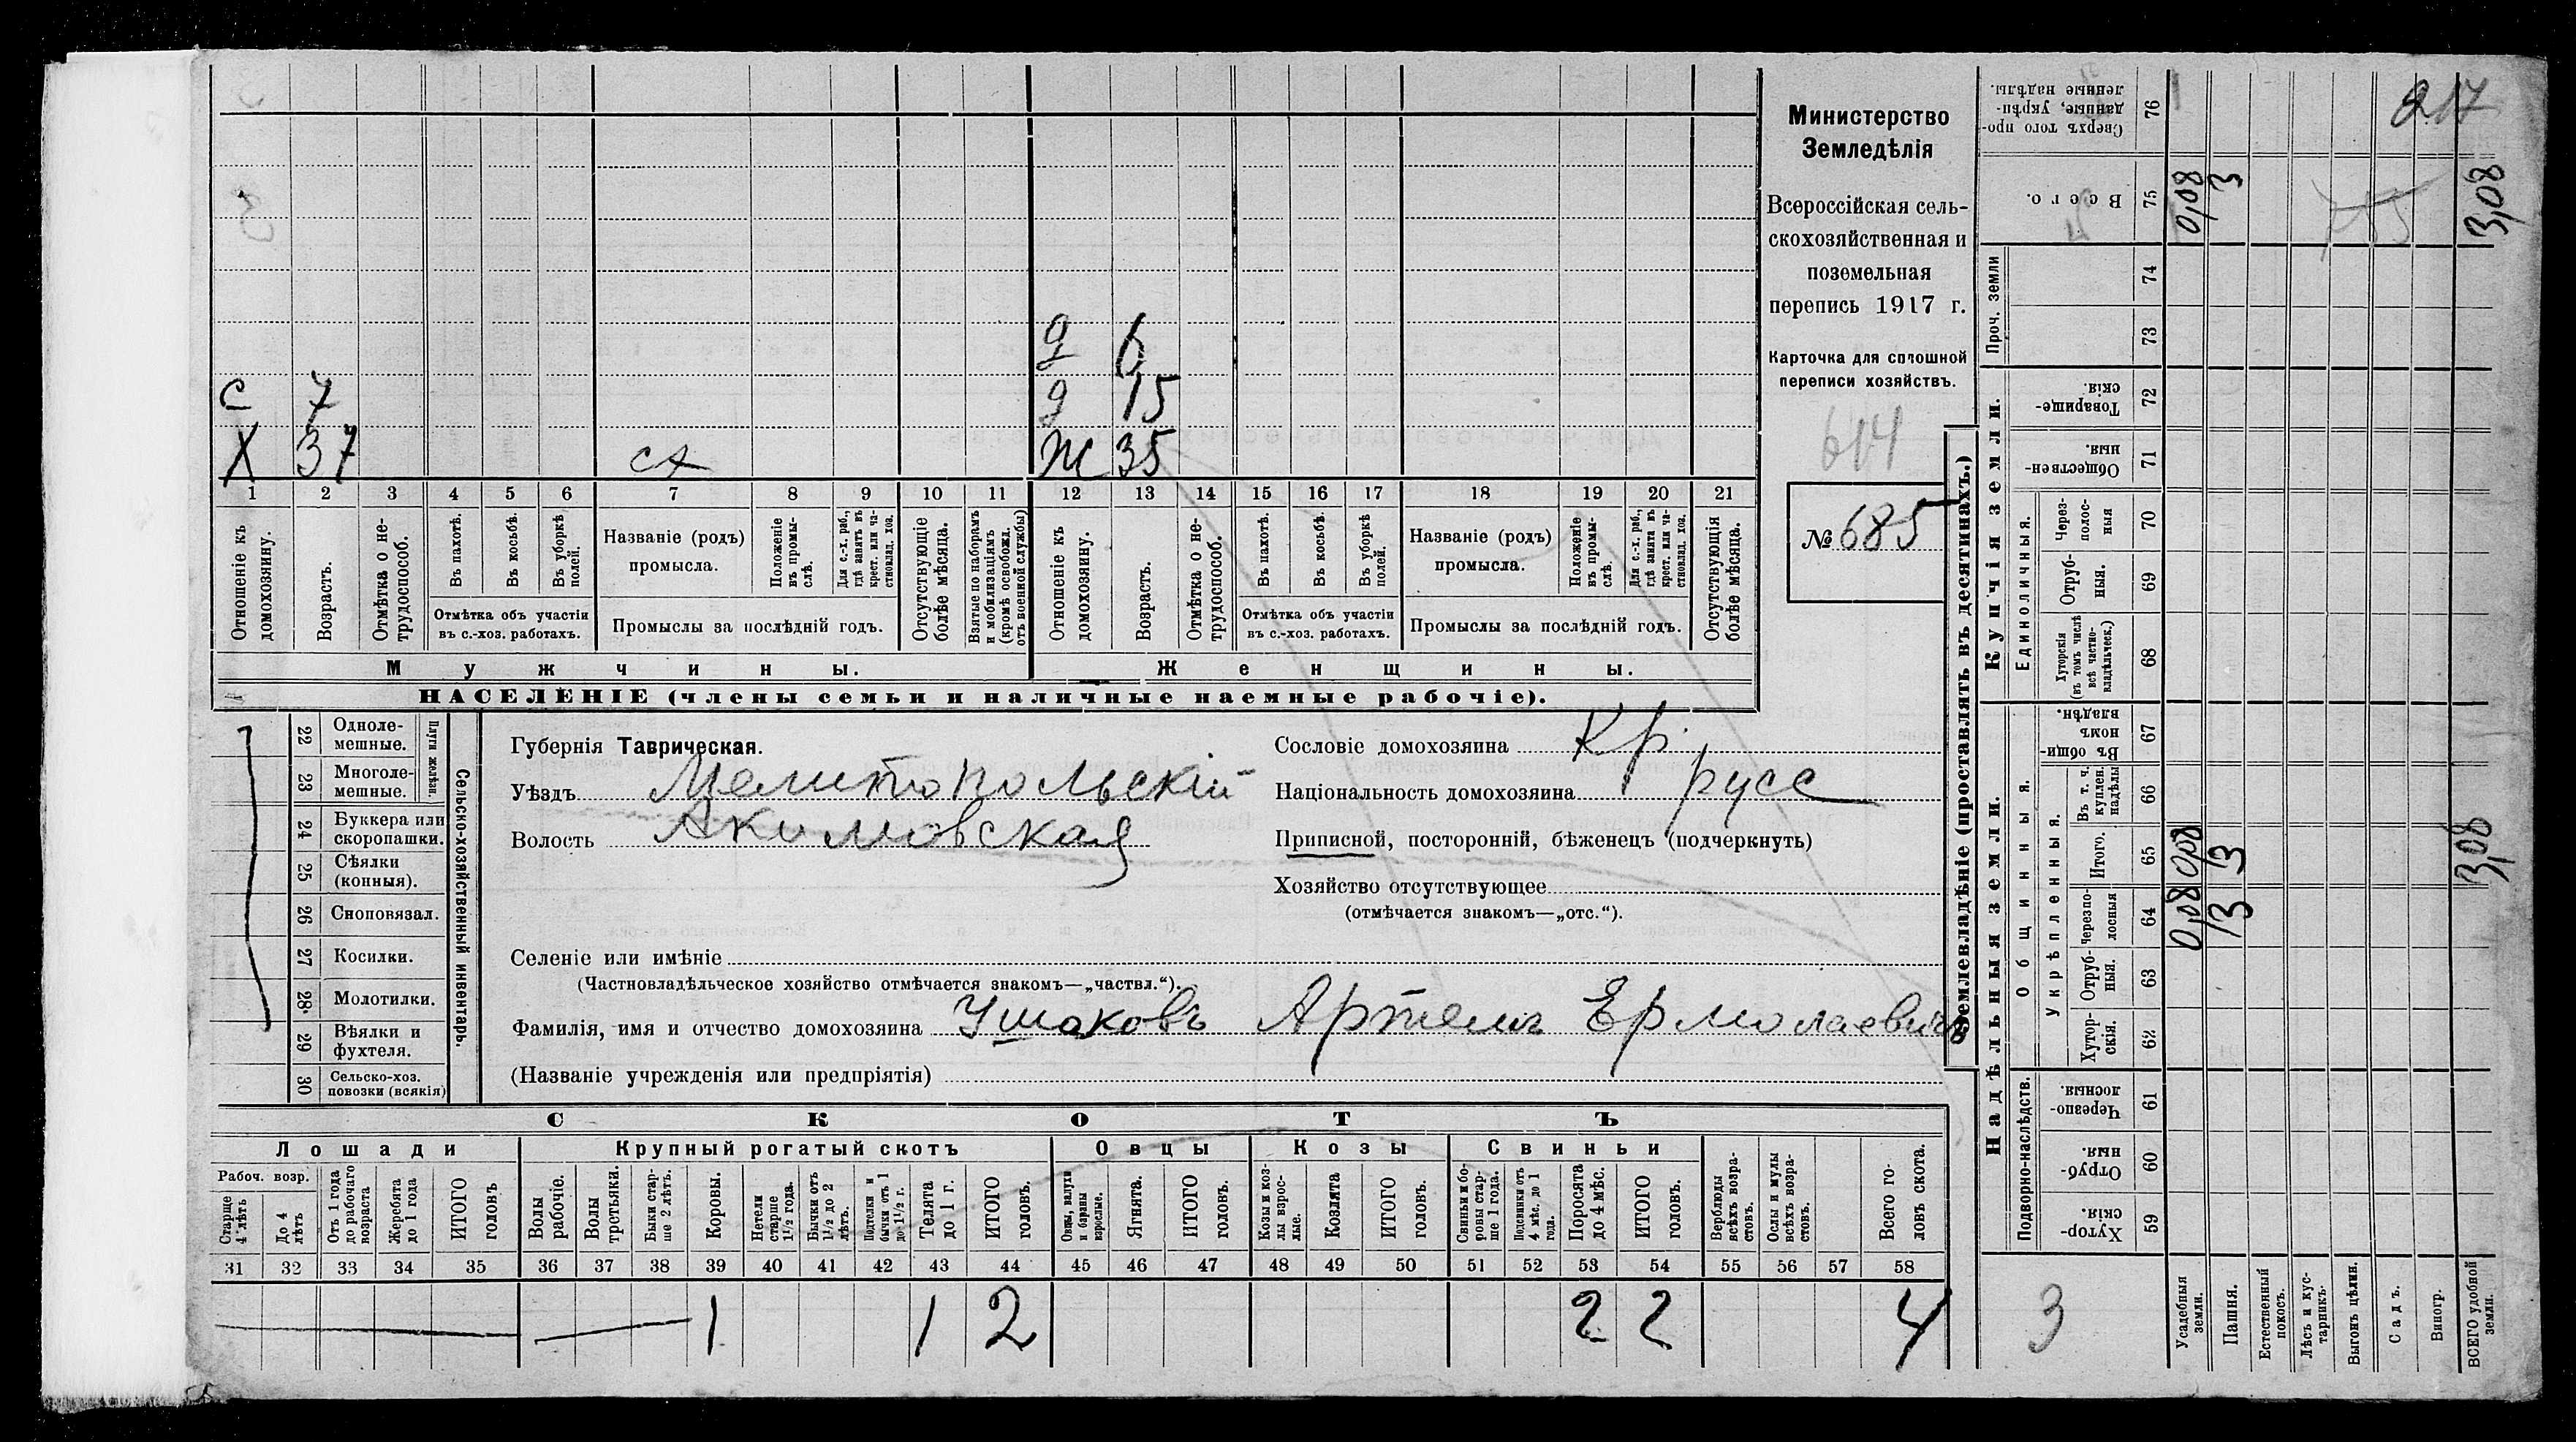 Министерство
Земледѣлія
Всероссійская сель-
скохозяйственная и
поземельная
перепись 1917 г.
Карточка для сплошной
переписи хозяйствъ.
614
№ 685
д 6
с 7 д 15
Х 37 сх Ж 35
1 2 3 4 5 6 7 8 9 10 11 12 13 14 15 16 17 18 19 20 21
Отношеніе къ домохозяину.
Возрастъ.
Отмѣтка о не-трудоспособ.
Въ пахотѣ.
Въ косьбѣ.
Въ уборкѣ полей.
Отмѣтка объ участіи
въ с.-хоз. работахъ.
Названіе (родъ)
промысла.
Положеніе въ промы-слѣ.
Для с.-х. раб., гдѣ занятъ въ крест. или ча-стновлад. хоз.
Промыслы за послѣдній годъ.
Отсутствующіе болѣе мѣсяца.
Взятые по наборамъ и мобилизаціямъ (кромѣ освобожд. отъ военной службы)
Отношеніе къ домохозяину.
Возрастъ.
Отмѣтка о не-трудоспособ.
Въ пахотѣ.
Въ косьбѣ.
Въ уборкѣ полей.
Отмѣтка объ участіи
въ с.-хоз. работахъ.
Названіе (родъ)
промысла.
Положеніе въ промы-слѣ.
Для с.-х. раб., гдѣ занята въ крест. или ча-стновлад. хоз.
Промыслы за послѣдній годъ.
Отсутствующія болѣе мѣсяца.
Мужчины. Женщины.
НАСЕЛЕНІЕ (члены семьи и наличные наемные рабочіе).
22 Одноле-мешные.
23 Многоле-мешные.
Плуги желѣзн.
24 Буккера или скоропашки.
25 Сѣялки (конныя).
26 Сноповязал.
27 Косилки.
28 Молотилки.
29 Вѣялки и фухтеля.
30 Сельско-хоз. повозки (всякія)
Сельско-хозяйственный инвентарь.
Губернія Таврическая.
Уѣздъ Мелитопольскій
Волость Акимовская
Сословіе домохозяина Кр.
Національность домохозяина русс
Приписной, посторонній, бѣженецъ (подчеркнуть)
Хозяйство отсутствующее
(отмѣчается знакомъ—„отс.“).
Селеніе или имѣніе
(Частновладѣльческое хозяйство отмѣчается знакомъ—„частвл.“).
Фамилія, имя и отчество домохозяина Ушаковъ Артемъ Ермолаевичъ
(Названіе учрежденія или предпріятія)
СКОТЪ
Лошади Крупный рогатый скотъ Овцы Козы Свиньи
Рабоч. возр.
Старше 4 лѣтъ
До 4 лѣтъ
Отъ 1 года до рабочаго возраста
Жеребята до 1 года
ИТОГО головъ
Волы рабочіе.
Волы третьяки.
Быки стар-ше 2 лѣтъ.
Коровы.
Нетели старше 1½ года.
Бычки отъ 1½ до 2 лѣтъ.
Подтелки и бычки отъ 1 до 1½ г.
Телята до 1 г.
ИТОГО головъ.
Овцы, валухи и бараны взрослые.
Ягнята.
ИТОГО головъ.
Козы и коз-лы взрос-лые.
Козлята
ИТОГО головъ.
Свиньи и бо-ровы стар-ше 1 года.
Подсвинки отъ 4 мѣс. до 1 года.
Поросята до 4 мѣс.
ИТОГО головъ.
Верблюды всѣхъ возра-стовъ.
Ослы и мулы всѣхъ возра-стовъ.
Всего го-ловъ скота.
31 32 33 34 35 36 37 38 39 40 41 42 43 44 45 46 47 48 49 50 51 52 53 54 55 56 57 58
1 1 2 2 2 4
Землевладѣніе (проставлять въ десятинахъ.)
Надѣльныя земли. Купчія земли.
Проч. земли
Подворно-наслѣдств.
Общинныя.
Укрѣпленныя.
Единоличныя.
Сверхъ того про-данные, укрѣп-ленные надѣлы. 76
Всего. 75 0,08 3 3,08
74
73
Товарище-скія. 72
Обществен-ныя. 71
Через-полос-ныя 70
Отруб-ныя. 69
Хуторскія (въ томъ числѣ всѣ частно-владѣльческ.) 68
Въ общин-номъ владѣн. 67
Въ т. ч. куплен. надѣлы 66
Итого. 65 0,08 3 3,08
Черезпо-лосныя 64 0,08 3
Отруб-ныя. 63
Хутор-скія. 62
Черезпо-лосныя. 61
Отруб-ныя. 60
Хутор-скія. 59
3
Усадебныя земли.
Пашня.
Естественный покосъ.
Лѣсъ и кус-тарникъ.
Выгонъ цѣлин.
Садъ.
Виногр.
ВСЕГО удобной земли.
217